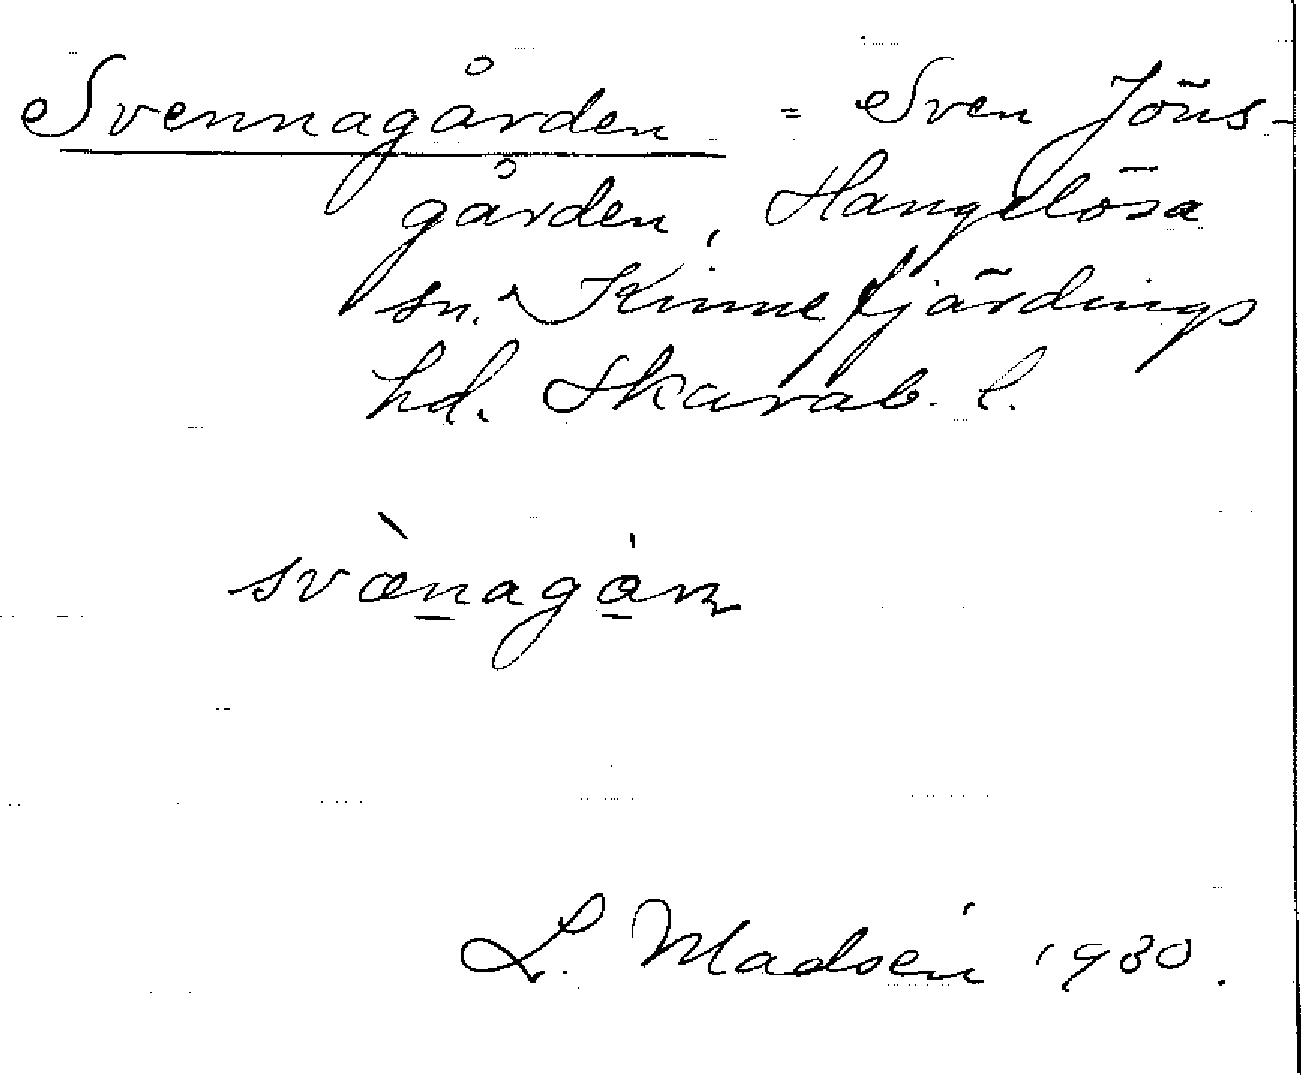 Svennagården = Sven Jöns-
gården, Hangelösa
sn. Kinnefjärdings
hd. Skarab. l.
svæ̀nagån
L. Madsén 1930.